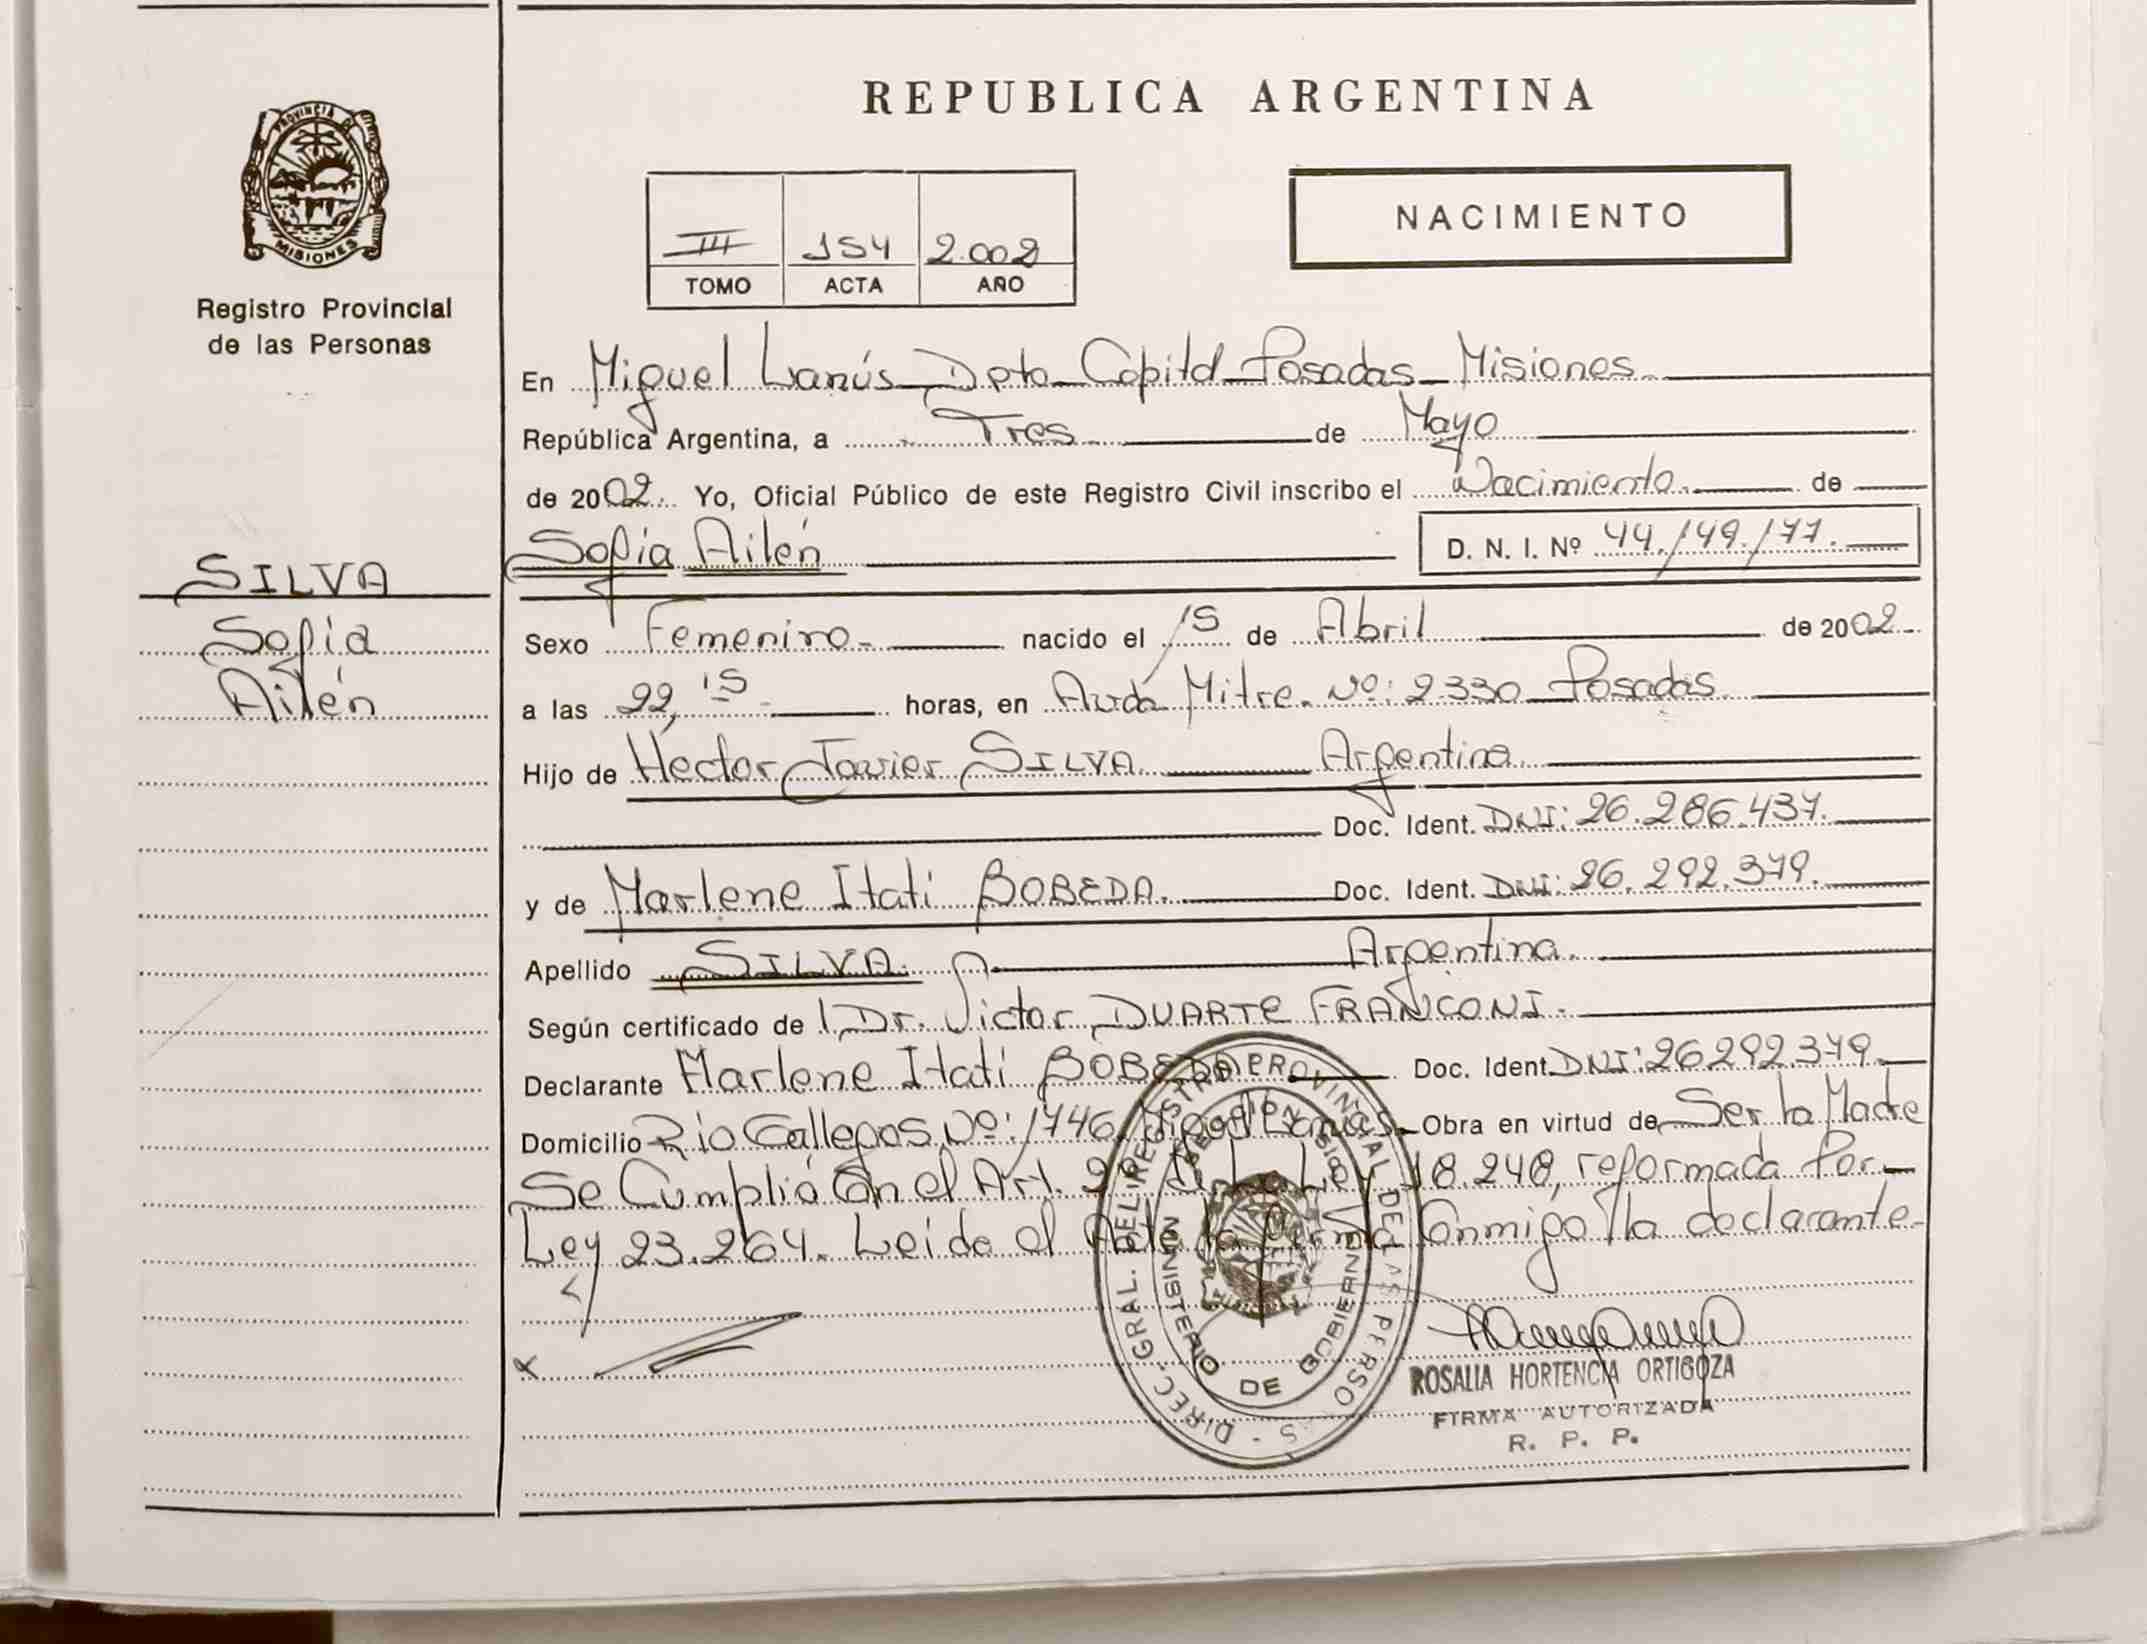 REPUBLICA ARGENTINA
PROVINCIA DE
MISIONES
Registro Provincial
de las Personas
NACIMIENTO
III 154 2.002
TOMO ACTA AÑO
En Miguel Lanús Dpto Capital Posadas Misiones
República Argentina, a Tres de Mayo
de 2002. Yo, Oficial Público de este Registro Civil inscribo el Nacimiento de
Sofía Ailén D. N. I. Nº 44.149.177.
SILVA
Sofía
Ailén
Sexo Femenino nacido el 15 de Abril de 2002
a las 22,15 horas, en Avda Mitre Nº: 2330 Posadas
Hijo de Héctor Javier SILVA Argentina
Doc. Ident. DNI: 26.286.437.
y de Marlene Itatí BOBEDA. Doc. Ident. DNI: 26.292.379.
Apellido SILVA Argentina.
Según certificado de Dr. Victor DUARTE FRANCONI.
Declarante Marlene Itatí BOBEDA Doc. Ident. DNI: 26292.379.
Domicilio Río Gallegos Nº: 1746 Miguel Lanús Obra en virtud de Ser la Madre
Se Cumplió Con el Art. de la Ley 18.248, reformada Por
Ley 23.264. Leída el Acta la Firma Conmigo la declarante
DIREC. GRAL. DEL REGISTRO PROVINCIAL DE LAS PERSONAS
MINISTERIO DE GOBIERNO
ROSALIA HORTENCIA ORTIGOZA
FIRMA AUTORIZADA
R. P. P.